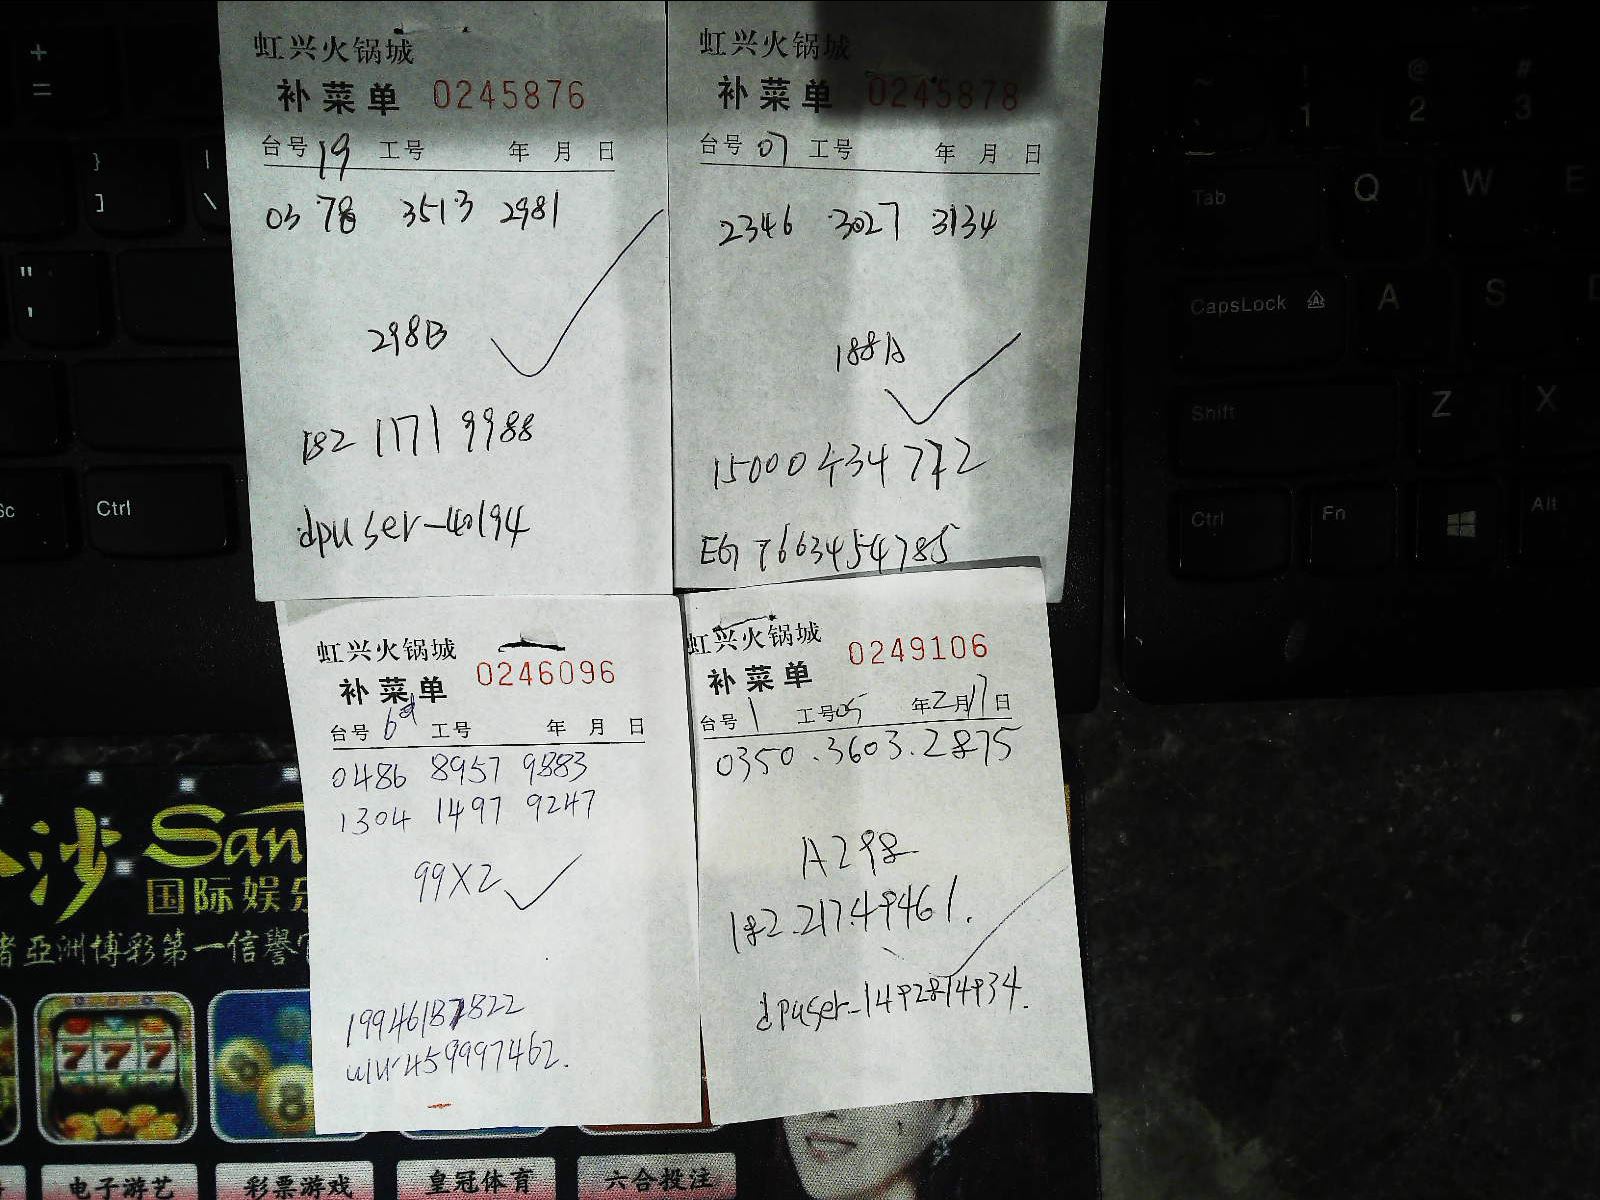 虹兴火锅城
补菜单 0245876
台号 19 工号 年 月 日
03 78 3513 2981
298B
182 1171 9988
dpuser-40194
虹兴火锅城
补菜单 0245878
台号 07 工号 年 月 日
2346 3027 3134
188A
15000434772
虹兴火锅城
补菜单 0246096
台号 工号 年 月 日
0486 8957 9883
1304 1497 9247
99X2
虹兴火锅城
补菜单 0249106
台号 1 工号05 年2月17日
0350.3603.2875
A298
182.21749461.
dpuser-1492814934.
+
=
}
]
|
\
"
'
Ctrl
~
!
1
@
2
#
3
Tab
Q
W
E
CapsLock
A
S
Shift
Z
X
Ctrl
Fn
Alt
沙 San
国际娱乐
者亞洲博彩第一信譽
777
8
电子游艺
彩票游戏
皇冠体育
六合投注